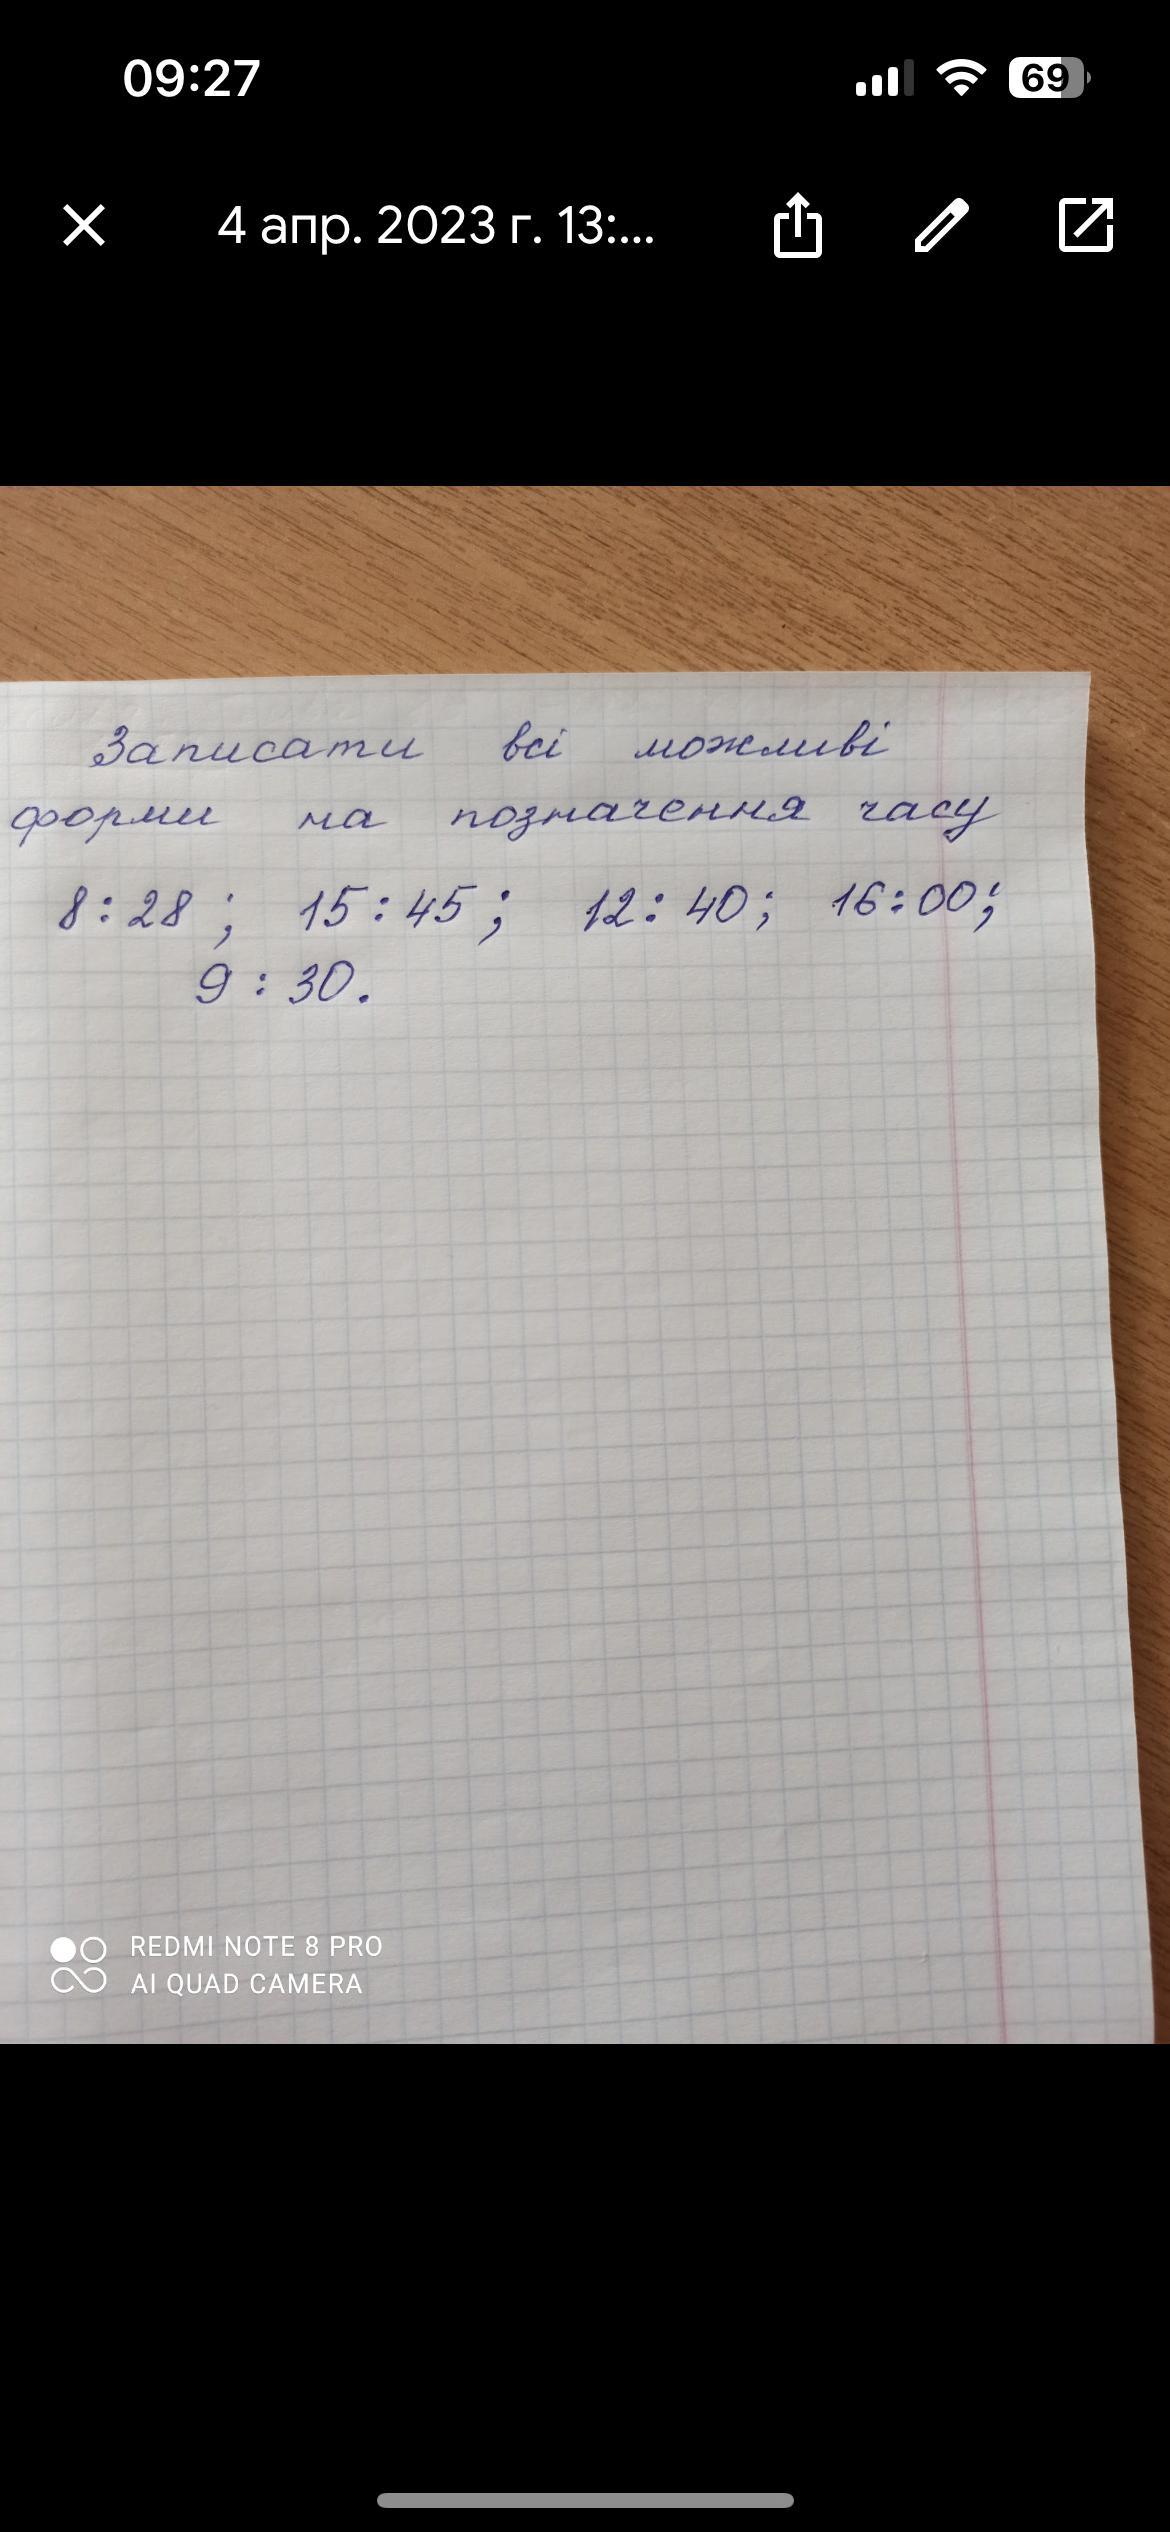 09:27
69
4 апр. 2023 г. 13:...
Записати всі можливі
форми на позначення часу
8:28; 15:45; 12:40; 16:00;
9:30.
REDMI NOTE 8 PRO
AI QUAD CAMERA